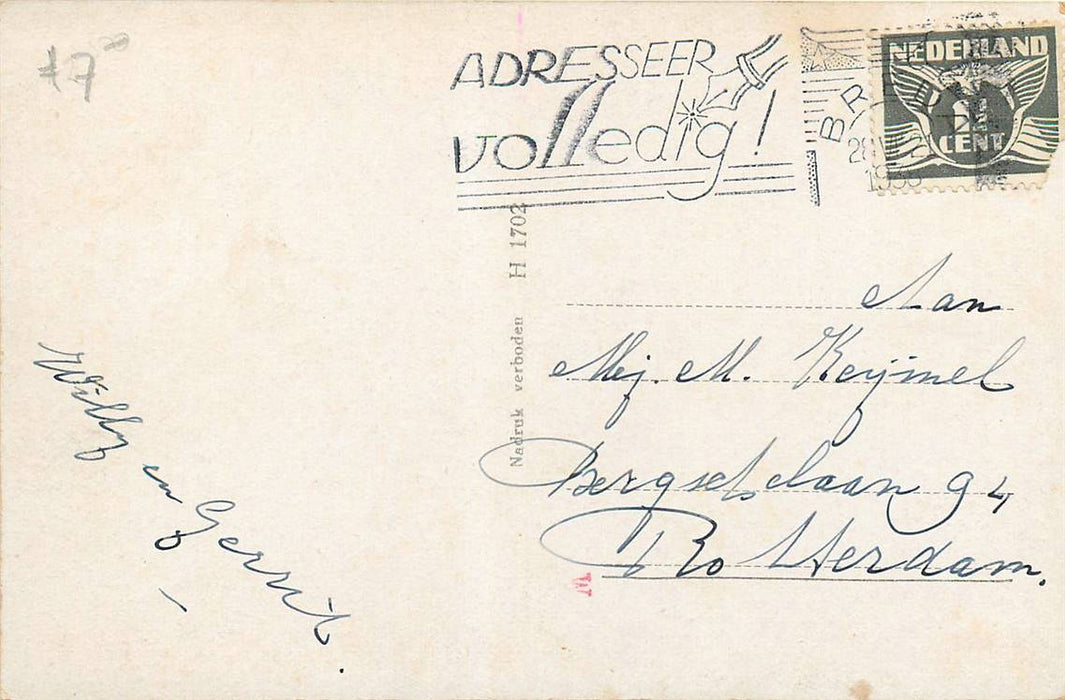 ADRESSEER
volledig!
NEDERLAND
CENT
Nadruk verboden H 1702
Aan
Mej. M. Keijmel
Bergselaan 94
Rotterdam.
Willy en Gerrit.
W